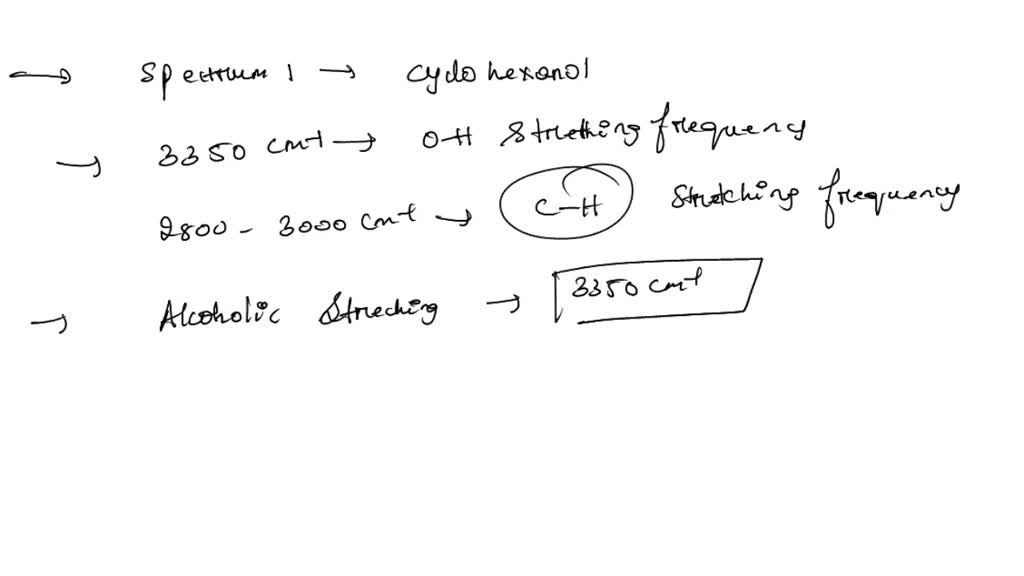 → Spectrum 1 → cyclohexanol
→ 3350 cm-1 → O-H Strething frequency
2800 - 3000 cm-1 → C-H Stretching frequency
→ Alcoholic Streching → 3350 cm-1